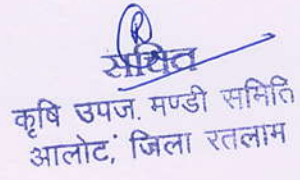 सचिव
कृषि उपज. मण्डी समिति
आलोट, जिला रतलाम